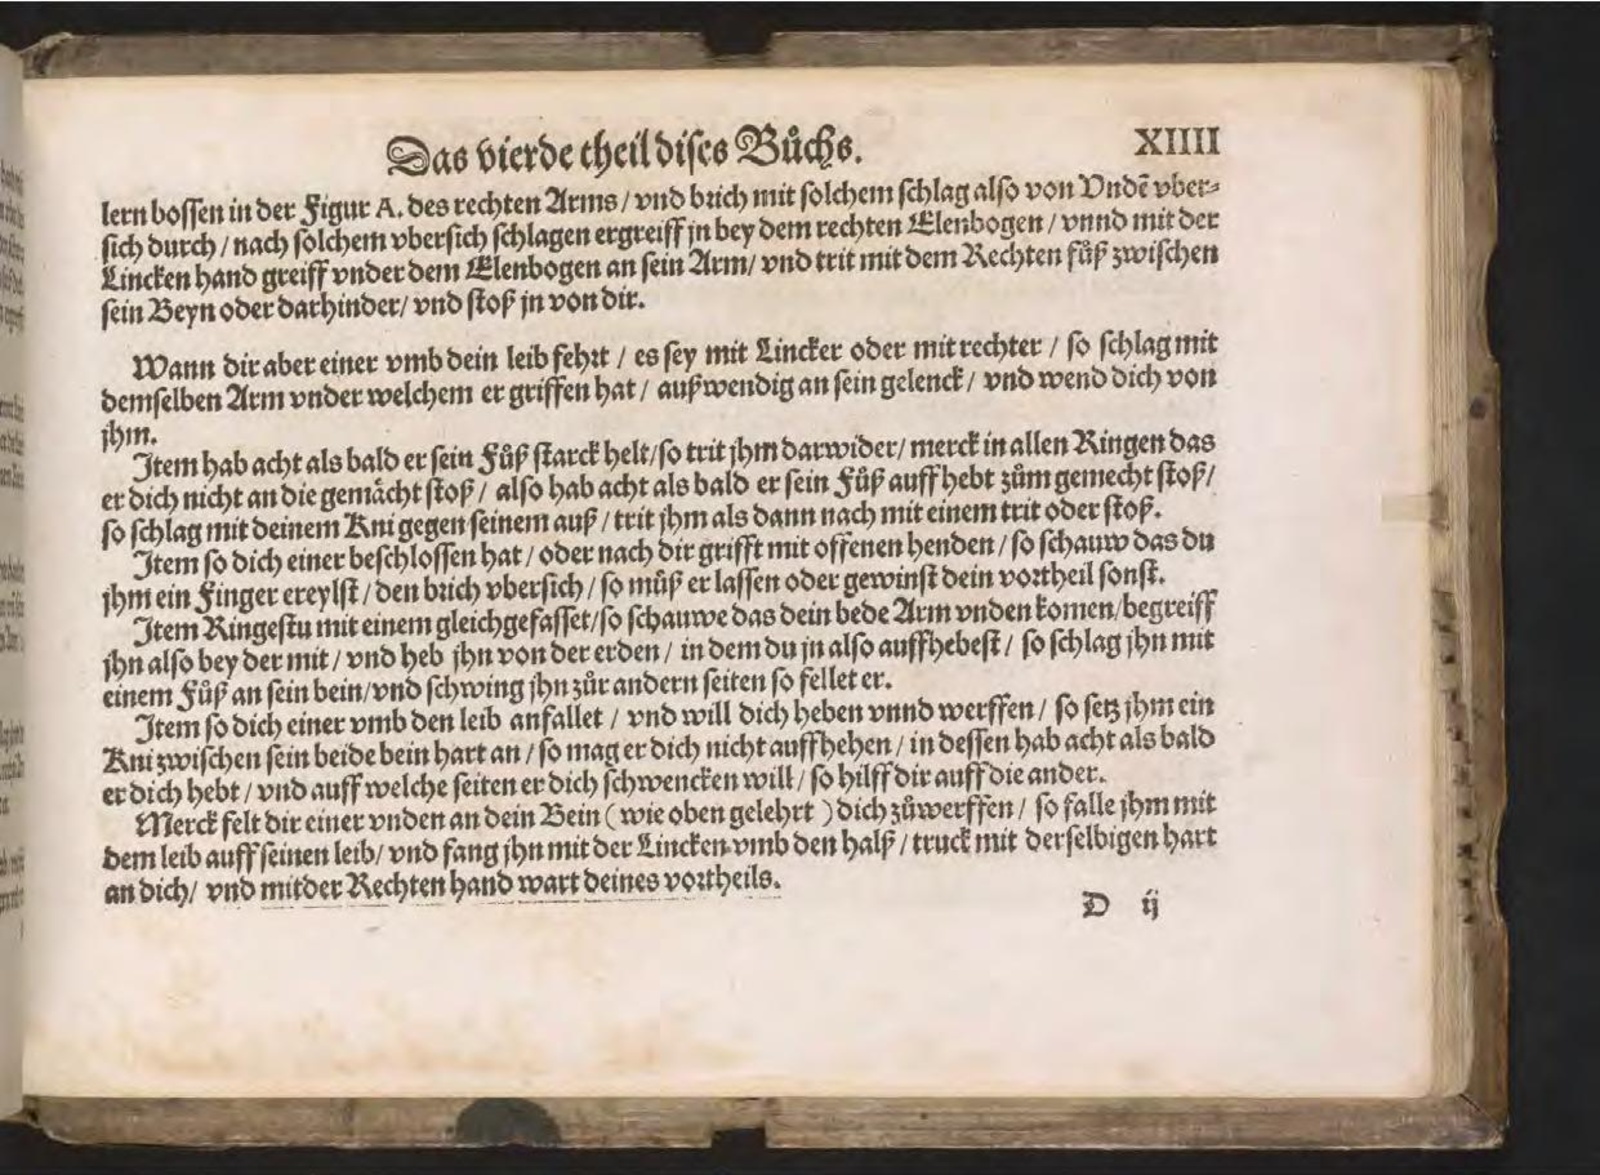 Das vierde theil dises Buͤchs. XIIII
lern bossen in der Figur A. des rechten Arms / vnd brich mit solchem schlag also von Vndē vber⸗
sich durch / nach solchem vbersich schlagen ergreiff jn bey dem rechten Elenbogen / vnnd mit der
Lincken hand greiff vnder dem Elenbogen an sein Arm / vnd trit mit dem Rechten fuͤß zwischen
sein Beyn oder darhinder / vnd stoß jn von dir.
Wann dir aber einer vmb dein leib fehrt / es sey mit Lincker oder mit rechter / so schlag mit
demselben Arm vnder welchem er griffen hat / außwendig an sein gelenck / vnd wend dich von
jhm.
Item hab acht als bald er sein Fuͤß starck helt / so trit jhm darwider / merck in allen Ringen das
er dich nicht an die gemaͤcht stoß / also hab acht als bald er sein Fuͤß auff hebt zuͤm gemecht stoß /
so schlag mit deinem Kni gegen seinem auß / trit jhm als dann nach mit einem trit oder stoß.
Item so dich einer beschlossen hat / oder nach dir grifft mit offenen henden / so schauw das du
jhm ein Finger ereylst / den brich vbersich / so muͤß er lassen oder gewinst dein vortheil sonst.
Item Ringestu mit einem gleichgefasset / so schauwe das dein bede Arm vnden komen / begreiff
jhn also bey der mit / vnd heb jhn von der erden / in dem du jn also auffhebest / so schlag jhn mit
einem Fuͤß an sein bein / vnd schwing jhn zuͤr andern seiten so fellet er.
Item so dich einer vmb den leib anfallet / vnd will dich heben vnnd werffen / so setz jhm ein
Kni zwischen sein beide bein hart an / so mag er dich nicht auffhehen / in dessen hab acht als bald
er dich hebt / vnd auff welche seiten er dich schwencken will / so hilff dir auff die ander.
Merck felt dir einer vnden an dein Bein ( wie oben gelehrt ) dich zuͤwerffen / so falle jhm mit
dem leib auff seinen leib / vnd fang jhn mit der Lincken vmb den halß / truck mit derselbigen hart
an dich / vnd mit der Rechten hand wart deines vortheils.
D ij